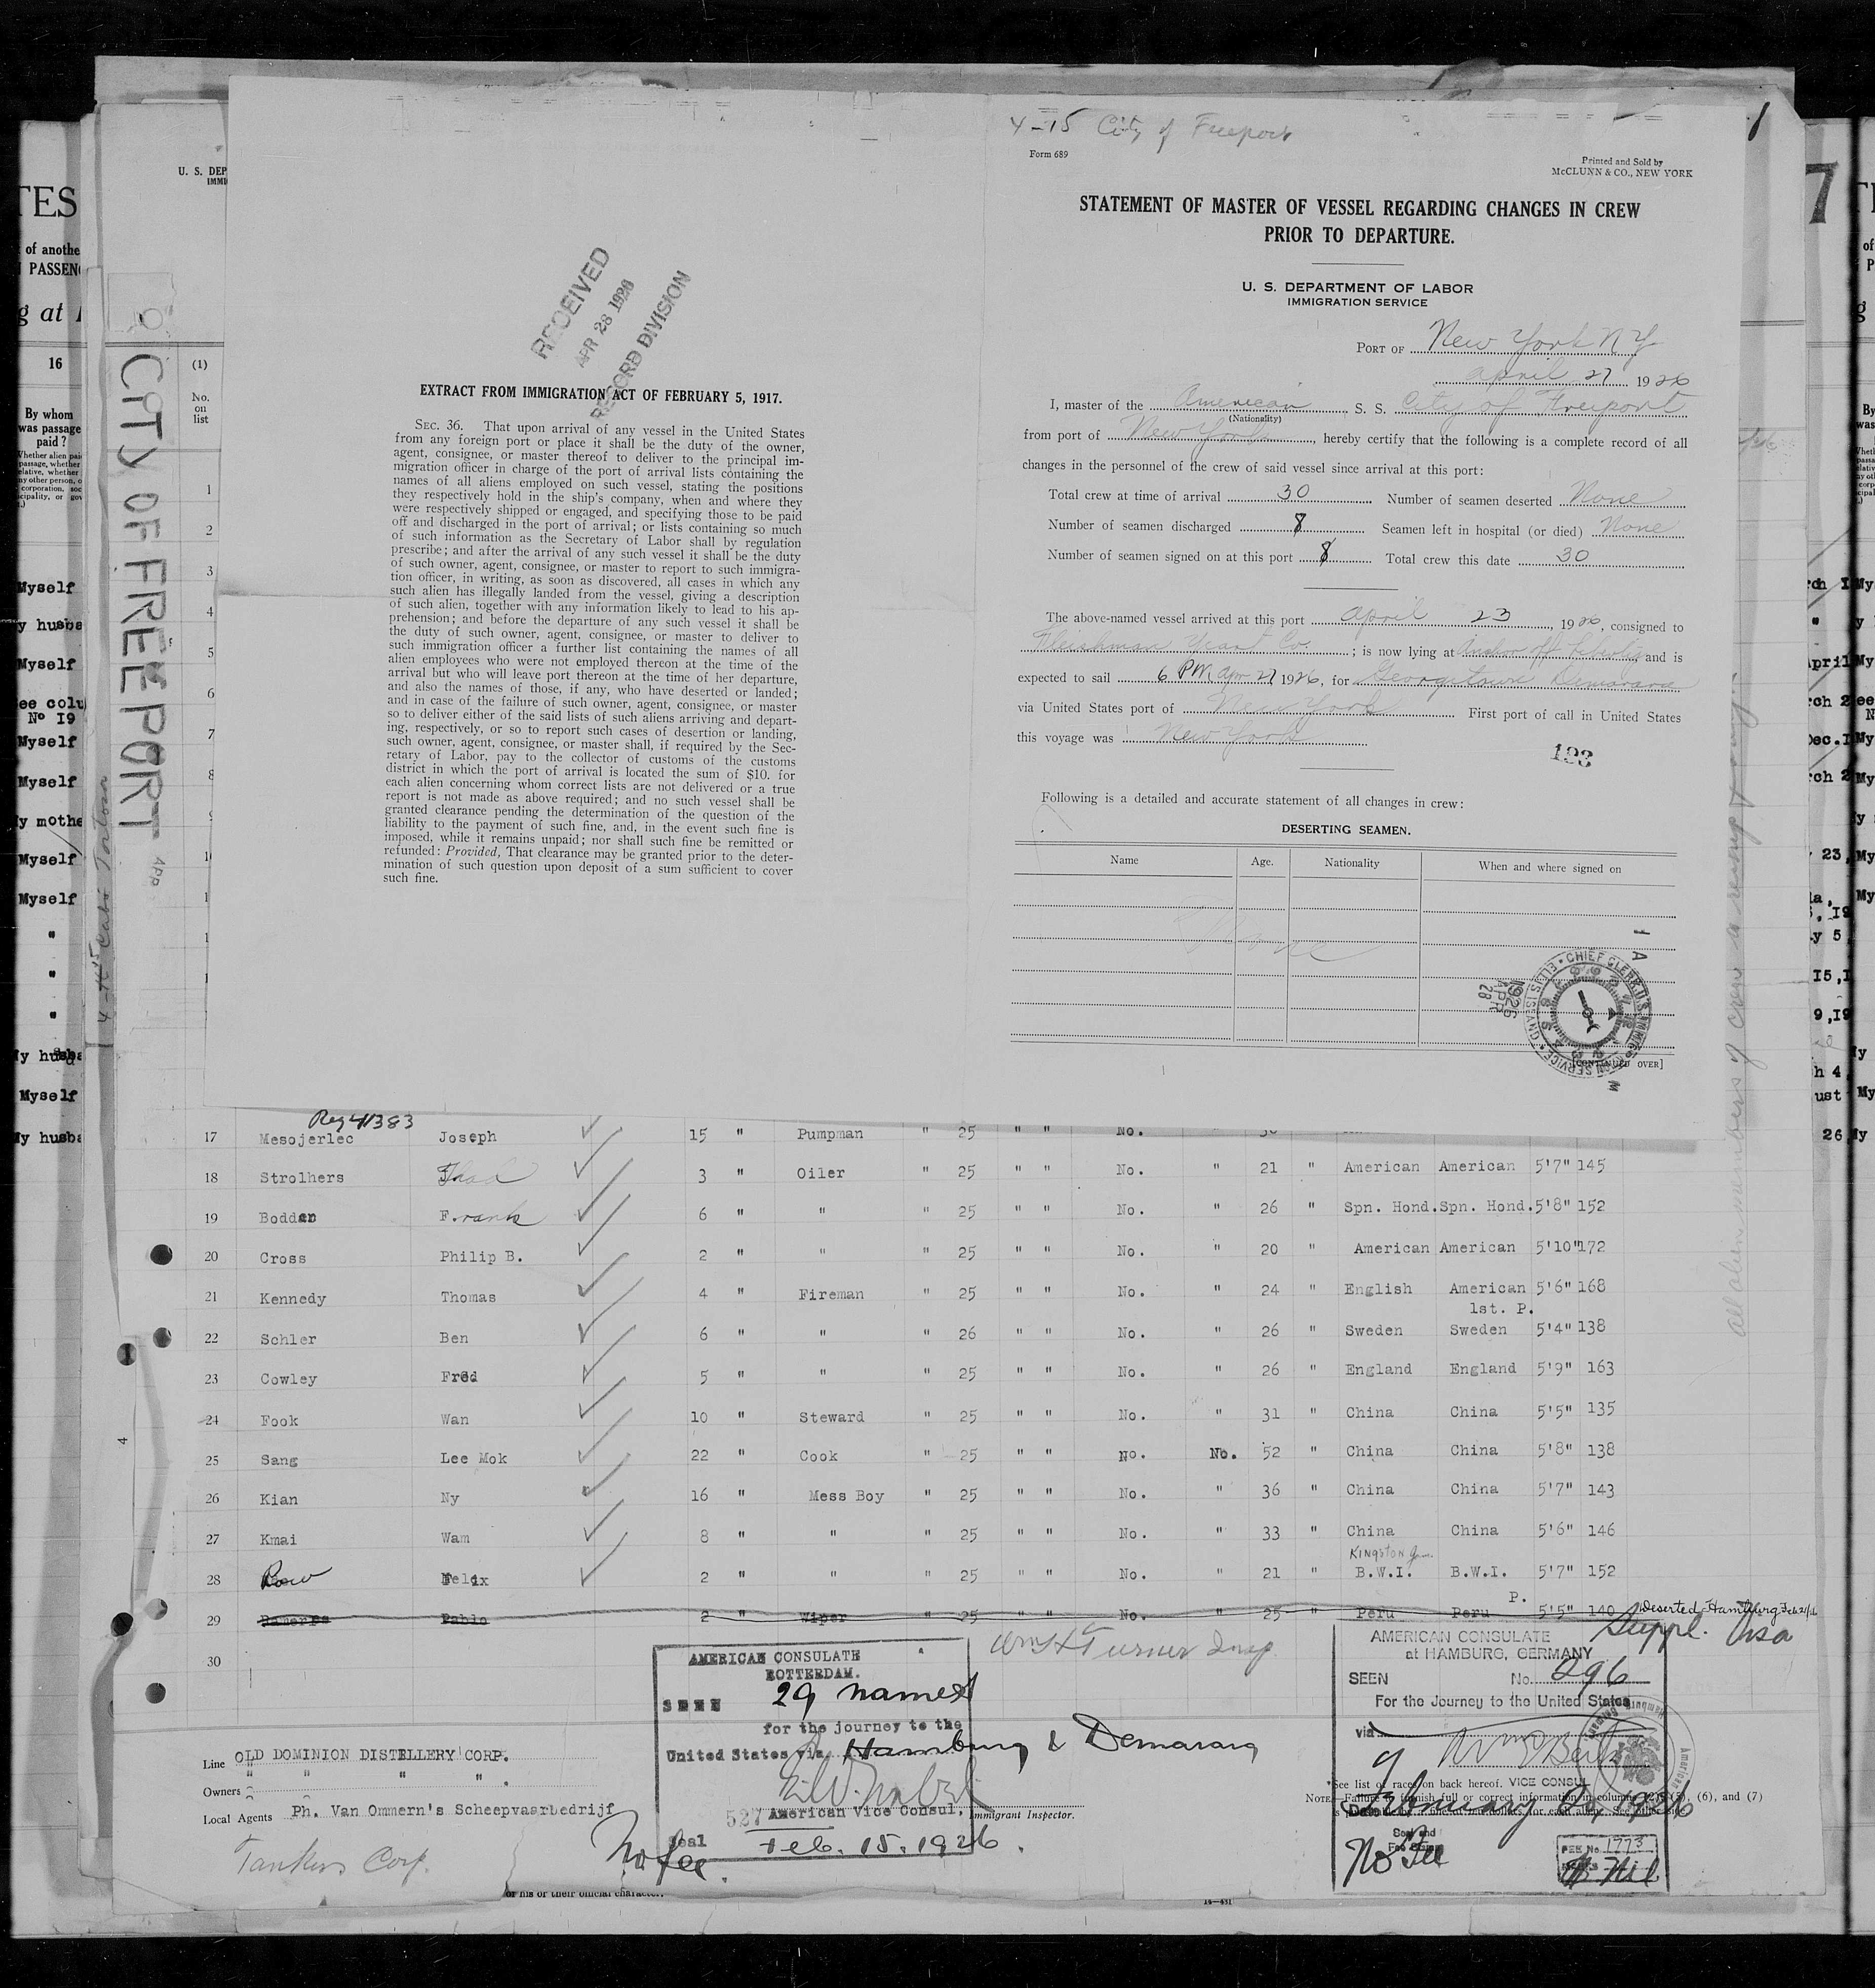 4-15 City of Freeport
Form 689
Printed and Sold by
McCLUNN & CO., NEW YORK
STATEMENT OF MASTER OF VESSEL REGARDING CHANGES IN CREW
PRIOR TO DEPARTURE.
U. S. DEPARTMENT OF LABOR
IMMIGRATION SERVICE
PORT OF New York N Y
april 27 1926
I, master of the American S. S. City of Freeport
(Nationality)
from port of New York, hereby certify that the following is a complete record of all
changes in the personnel of the crew of said vessel since arrival at this port:
Total crew at time of arrival 30 Number of seamen deserted None
Number of seamen discharged 8 Seamen left in hospital (or died) None
Number of seamen signed on at this port 8 Total crew this date 30
The above-named vessel arrived at this port april 23, 1926, consigned to
Fleishman Yeast Co. ; is now lying at Anchor off Liberty and is
expected to sail 6 PM apr 27 1926, for Georgetown Demarara
via United States port of New York First port of call in United States
this voyage was New York
193
Following is a detailed and accurate statement of all changes in crew:
DESERTING SEAMEN.
Name Age. Nationality When and where signed on
None
[CONTINUED OVER]
CHIEF CLERK U.S. IMMIGRATION SERVICE ELLIS ISLAND
1926 APR 28
RECEIVED
APR 28 1926
RECORD DIVISION
EXTRACT FROM IMMIGRATION ACT OF FEBRUARY 5, 1917.
SEC. 36. That upon arrival of any vessel in the United States
from any foreign port or place it shall be the duty of the owner,
agent, consignee, or master thereof to deliver to the principal im-
migration officer in charge of the port of arrival lists containing the
names of all aliens employed on such vessel, stating the positions
they respectively hold in the ship's company, when and where they
were respectively shipped or engaged, and specifying those to be paid
off and discharged in the port of arrival; or lists containing so much
of such information as the Secretary of Labor shall by regulation
prescribe; and after the arrival of any such vessel it shall be the duty
of such owner, agent, consignee, or master to report to such immigra-
tion officer, in writing, as soon as discovered, all cases in which any
such alien has illegally landed from the vessel, giving a description
of such alien, together with any information likely to lead to his ap-
prehension; and before the departure of any such vessel it shall be
the duty of such owner, agent, consignee, or master to deliver to
such immigration officer a further list containing the names of all
alien employees who were not employed thereon at the time of the
arrival but who will leave port thereon at the time of her departure,
and also the names of those, if any, who have deserted or landed;
and in case of the failure of such owner, agent, consignee, or master
so to deliver either of the said lists of such aliens arriving and depart-
ing, respectively, or so to report such cases of desertion or landing,
such owner, agent, consignee, or master shall, if required by the Sec-
retary of Labor, pay to the collector of customs of the customs
district in which the port of arrival is located the sum of $10. for
each alien concerning whom correct lists are not delivered or a true
report is not made as above required; and no such vessel shall be
granted clearance pending the determination of the question of the
liability to the payment of such fine, and, in the event such fine is
imposed, while it remains unpaid; nor shall such fine be remitted or
refunded: Provided, That clearance may be granted prior to the deter-
mination of such question upon deposit of a sum sufficient to cover
such fine.
CITY OF FREEPORT
APR
U. S. DEP
IMMI
(1)
No.
on
list
1
2
3
4
5
6
7
8
16
By whom
was passage
paid?
Myself
Myself
No 19
Myself
Myself
Myself
Myself
Myself
Reg 41383
17 Mesojerlec Joseph 15 " Pumpman " 25 No.
18 Strolhers Thad 3 " Oiler " 25 " " No. " 21 " American American 5'7" 145
19 Bodden Frank 6 " " " 25 " " No. " 26 " Spn. Hond. Spn. Hond. 5'8" 152
20 Cross Philip B. 2 " " " 25 " " No. " 20 " American American 5'10" 172
21 Kennedy Thomas 4 " Fireman " 25 " " No. " 24 " English American 5'6" 168
1st. P.
22 Schler Ben 6 " " " 26 " " No. " 26 " Sweden Sweden 5'4" 138
23 Cowley Fred 5 " " " 25 " " No. " 26 " England England 5'9" 163
24 Fook Wan 10 " Steward " 25 " " No. " 31 " China China 5'5" 135
25 Sang Lee Mok 22 " Cook " 25 " " No. No. 52 " China China 5'8" 138
26 Kian Ny 16 " Mess Boy " 25 " " No. " 36 " China China 5'7" 143
27 Kmai Wam 8 " " " 25 " " No. " 33 " China China 5'6" 146
Kingston Jm.
28 Row Felix 2 " " " 25 " " No. " 21 " B.W.I. B.W.I. 5'7" 152
P.
29 Pablo 2 " Wiper " 25 " " No. " 25 " Peru Peru 5'5" 140 Deserted-Hamburg
30
Wm H Turner Insp.
Suppl. Visa
AMERICAN CONSULATE
ROTTERDAM.
SEEN 29 names
for the journey to the
United States via Hamburg & Demarara
527 American Vice Consul,
Seal Feb. 15. 1926.
No fee
Immigrant Inspector.
AMERICAN CONSULATE
at HAMBURG, GERMANY
SEEN No. 296
For the Journey to the United States
via
VICE CONSUL
February 1926
No Fee
FEE No. 1773
Line OLD DOMINION DISTELLERY CORP.
Owners " " " " .
Local Agents Ph. Van Ommern's Scheepvaarbedrijf
Tankers Corp.
*See list of races on back hereof.
NOTE.—Failure to furnish full or correct information in columns (2), (5), (6), and (7)
of his or their official character.
14-431
All alien members of crew